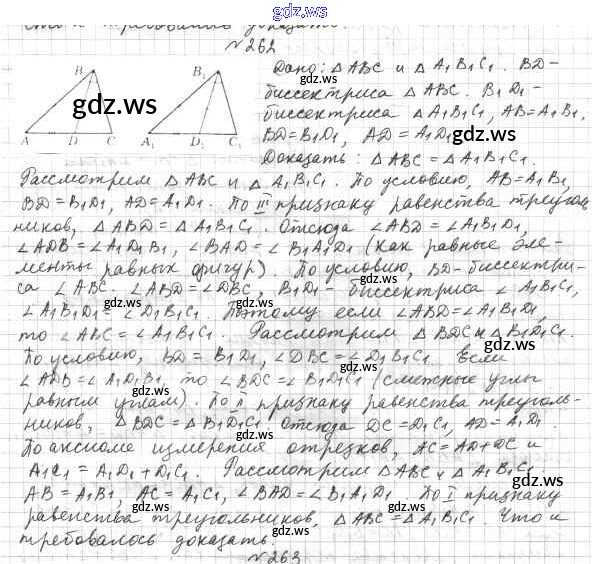 gdz.ws
что и требовалось доказать.
№262
B
B₁
A D C
A₁ D₂ C₁
gdz.ws
Дано: △ABC и △A₁B₁C₁. BD-
биссектриса △ABC. B₁D₁-
биссектриса △A₁B₁C₁, AB=A₁B₁,
BD=B₁D₁, AD=A₁D₁
Доказать: △ABC=△A₁B₁C₁.
Рассмотрим △ABC и △A₁B₁C₁. По условию, AB=A₁B₁,
BD=B₁D₁, AD=A₁D₁. По III признаку равенства треуголь
ников, △ABD=△A₁B₁D₁. Отсюда ∠ABD=∠A₁B₁D₁,
∠ADB=∠A₁D₁B₁, ∠BAD=∠B₁A₁D₁ (как равные эле-
менты равных фигур). По условию, BD-биссектри-
са ∠ABC. ∠ABD=∠DBC, B₁D₁- биссектриса ∠A₁B₁C₁,
gdz.ws
∠A₁B₁D₁=∠D₁B₁C₁. Поэтому если ∠ABD=∠A₁B₁D₁,
то ∠ABC=∠A₁B₁C₁. Рассмотрим △BDC и △B₁D₁C₁.
По условию, BD=B₁D₁, ∠DBC=∠D₁B₁C₁. Если
∠ADB=∠A₁D₁B₁, то ∠BDC=∠B₁D₁C₁ (смежные углы
равным углам). По II признаку равенства треуголь-
ников, △BDC=△B₁D₁C₁. Отсюда DC=D₁C₁, AD=A₁D₁.
gdz.ws
По аксиоме измерения отрезков, AC=AD+DC и
A₁C₁=A₁D₁+D₁C₁. Рассмотрим △ABC и △A₁B₁C₁.
AB=A₁B₁, AC=A₁C₁, ∠BAD=∠B₁A₁D₁. По I признаку
равенства треугольников, △ABC=△A₁B₁C₁. Что и
требовалось доказать.
gdz.ws
№263